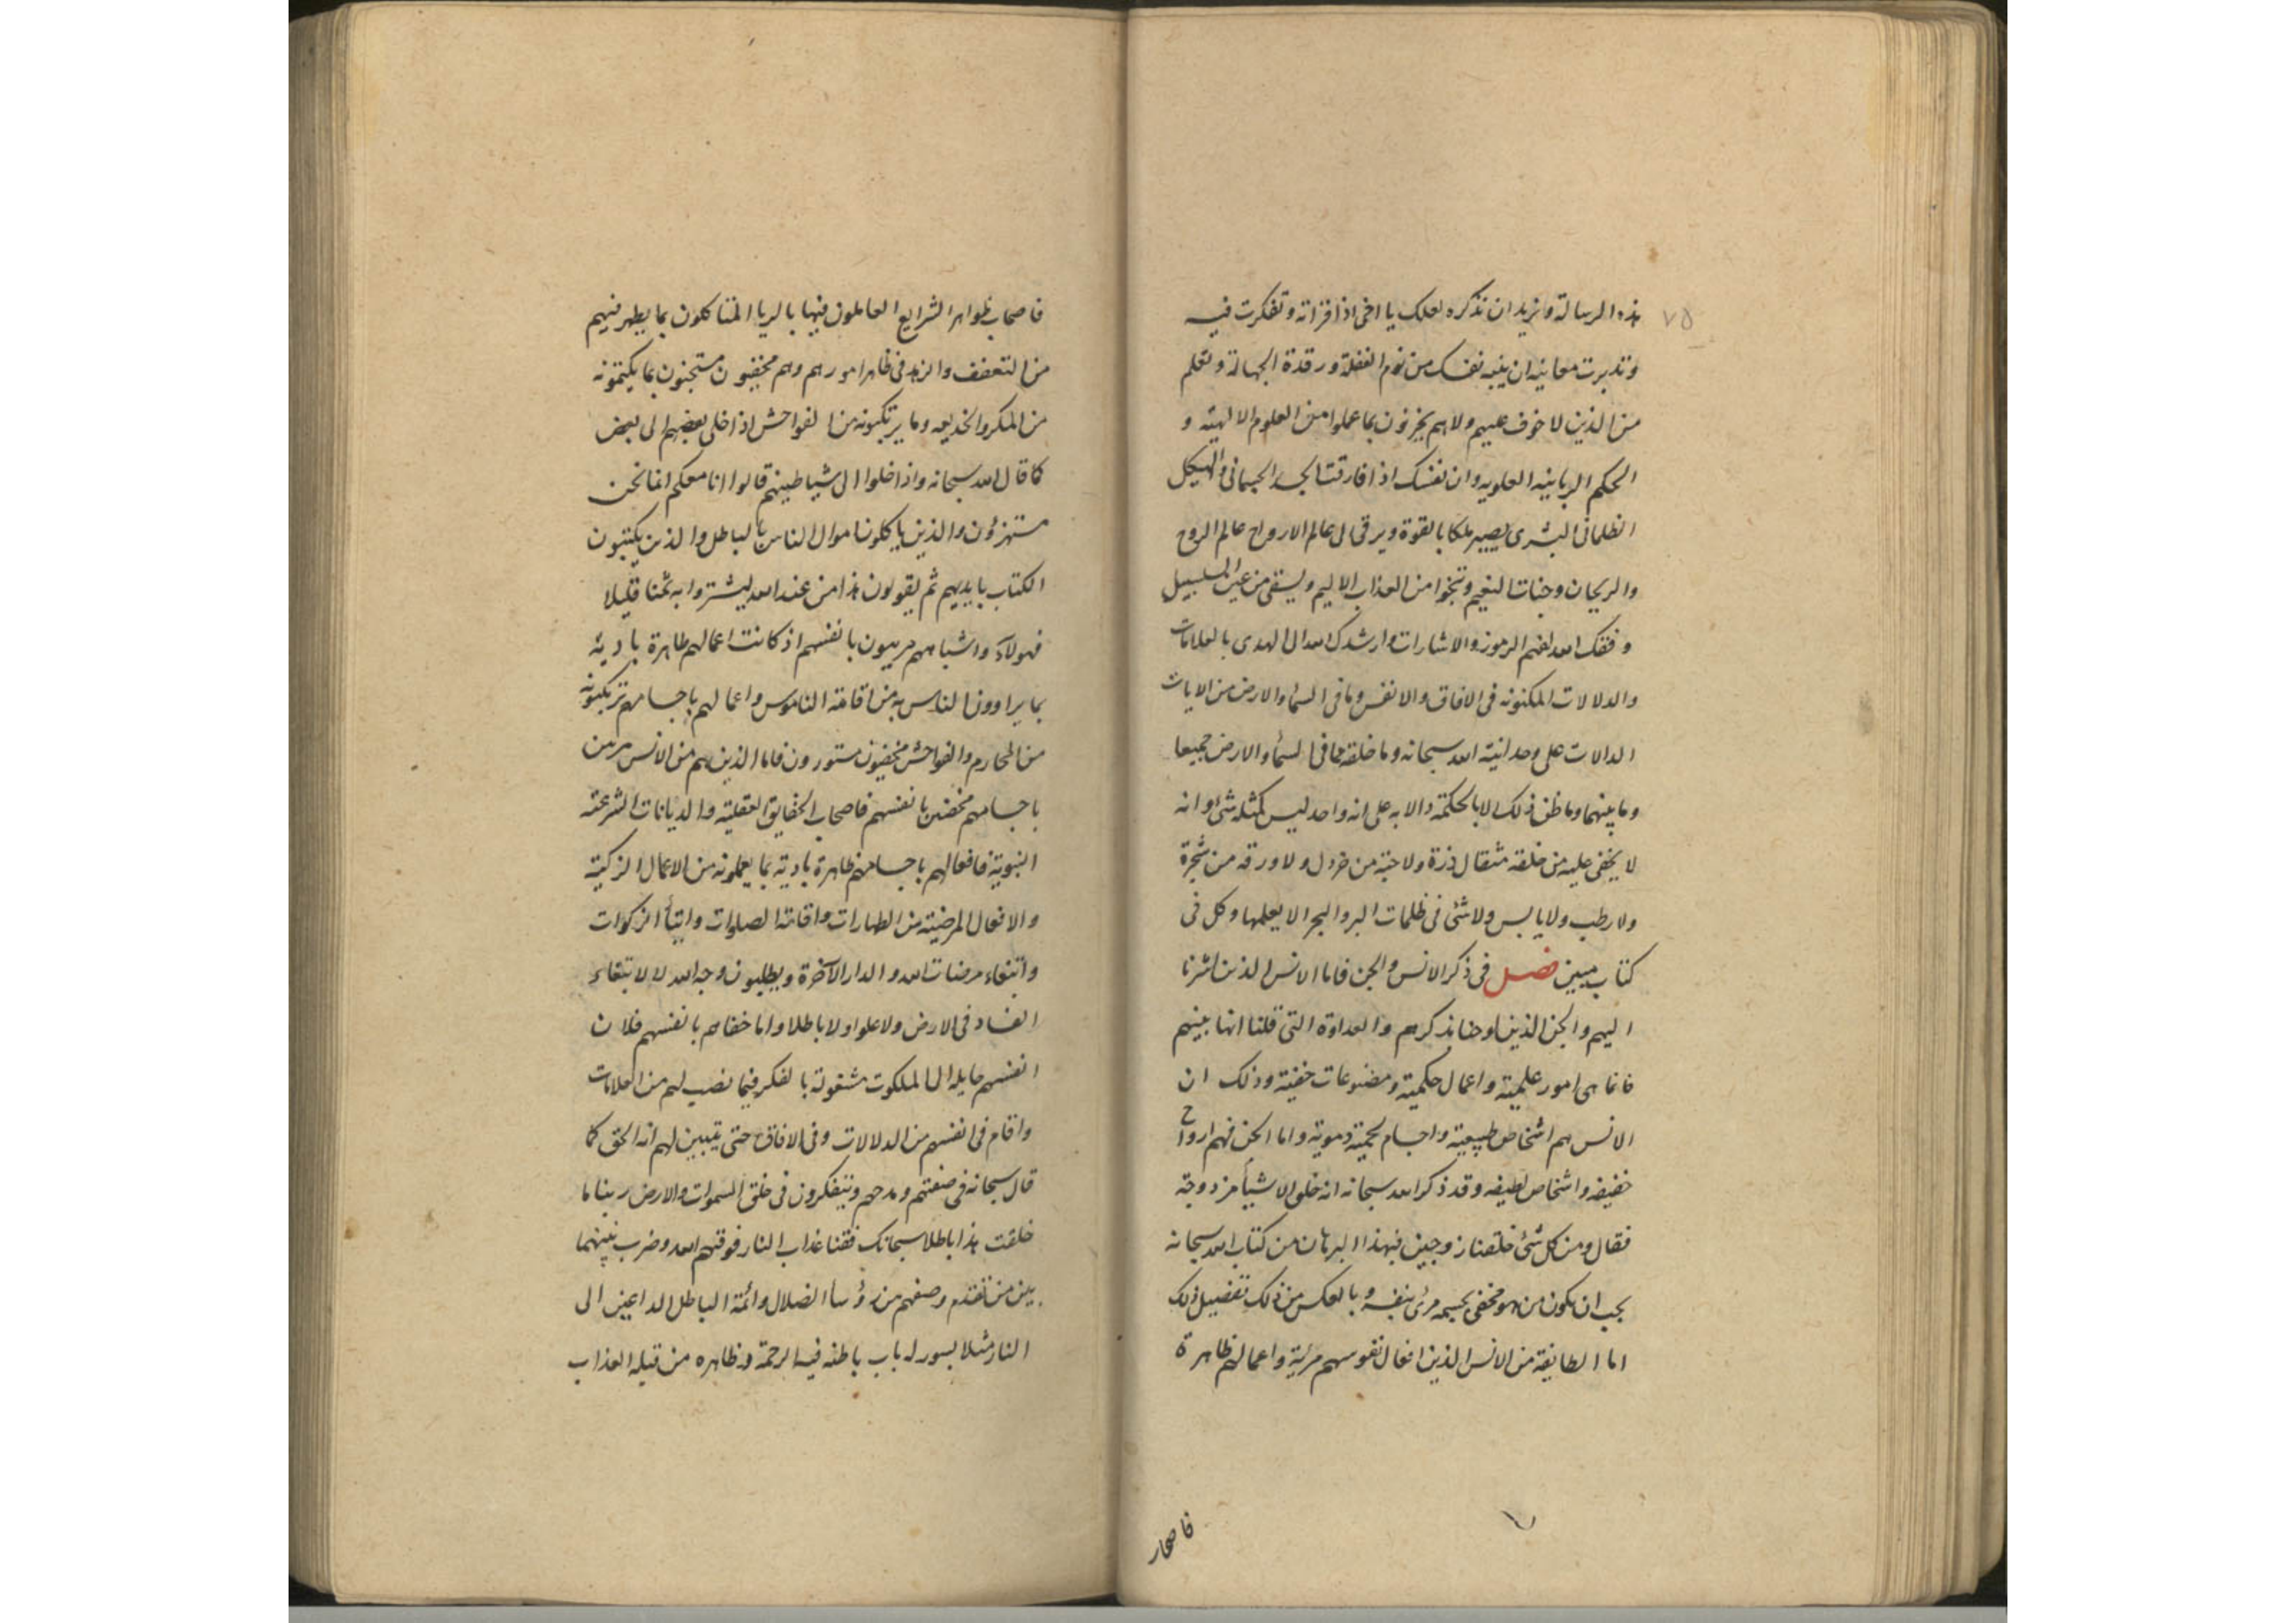 ٧٥
هذه الرسالة ونريد ان نذكره لعلك يا اخى اذا قراته وتفكرت فيه
وتدبرت معانيه ان ينبه نفسك من نوم الغفلة ورقدة الجهالة وتعلم
من الذين لا خوف عليهم ولا هم يحزنون بما عملوا من العلوم الالهية و
الحكم الربانيه العلويه وان نفسك اذا فارقت الجسد الجسمانى والهيكل
الظلمانى البشرى يصير ملكا بالقوة ويرقى الى عالم الارواح عالم الروح
والريحان وجنات النعيم وتنجوا من العذاب الاليم ويسقى من عين السلسبيل
وفقك الله لفهم الرموز والاشارات وارشدك الله الى الهدى بالعلامات
والدلالات المكنونه فى الافاق والانفس وما فى السماء والارض من الايات
الدالات على وحدانية الله سبحانه وما خلقه مما فى السماء والارض جميعا
وما بينهما وما ظن ذلك الا بالحكمة دالا به على انه واحد ليس كمثله شئ وانه
لا يخفى عليه من خلقه مثقال ذرة ولا حبة من خردل ولا ورقه من شجرة
ولا رطب ولا يابس ولا شئ فى ظلمات البر والبحر الا يعلمها وكل فى
كتاب مبين فصل فى ذكر الانس والجن فاما الانس الذين اشرنا
اليهم والجن الذين اوضحنا بذكرهم والعداوة التى قلنا انها بينهم
فانما هى امور علمية واعمال حكمية ومصنوعات خفية وذلك ان
الانس هم اشخاص طبيعية واجسام لحمية دموية واما الجن فهم ارواح
خفيفه واشخاص لطيفه وقد ذكر الله سبحانه انه خلق الاشياء مزدوجة
فقال ومن كل شئ خلقنا زوجين فبهذا البرهان من كتاب الله سبحانه
يجب ان يكون من هو مخفى بجسمه مرئى بنفسه وبالعكس من ذلك تفصيل ذلك
اما الطايفة من الانس الذين افعال نفوسهم مرئية واعمالهم ظاهرة
فاصحاب
فاصحاب ظواهر الشرايع العاملون فيها بالريا المتاكلون بما يظهر فيهم
من التعفف والزهد فى ظاهر امورهم وهم مخفيون مستجنون بما يكتمونه
من المكر والخديعه وما يرتكبونه من الفواحش اذا خلى بعضهم الى بعض
كما قال الله سبحانه واذا خلوا الى شياطينهم قالوا انا معكم انما نحن
مستهزؤن والذين ياكلون اموال الناس بالباطل والذين يكتبون
الكتاب بايديهم ثم يقولون هذا من عند الله ليشتروا به ثمنا قليلا
فهولآء واشباههم مريبون بانفسهم اذ كانت اعمالهم ظاهرة بادية
بما يراوون الناس به من اقامة الناموس واعمالهم باجسامهم تركبونه
من المحارم والفواحش مخفيون مستورون فاما الذين هم من الانس مرئين
باجسامهم مخفين بانفسهم فاصحاب الحقايق العقلية والديانات الشرعية
النبوية فافعالهم باجسامهم ظاهرة بادية بما يعملونه من الاعمال الزكية
والافعال المرضية من الطهارات واقامة الصلوات وايتآ الزكوات
وابتغاء مرضات الله والدار الآخرة ويطلبون وجه الله لا لابتغاء
الفساد فى الارض ولا علوا ولا باطلا واما خفاهم بانفسهم فلان
انفسهم مايله الى الملكوت مشغولة بالفكر فيما نصب لهم من العلامات
واقام فى انفسهم من الدلالات وفى الافاق حتى يتبين لهم انه الحق كما
قال سبحانه فى صفتهم ومدحهم ويتفكرون فى خلق السموات والارض ربنا ما
خلقت هذا باطلا سبحانك فقنا عذاب النار فوقتهم الله وضرب بينهما
بين من تقدم وصفهم من رؤسآ الضلال وائمة الباطل الداعين الى
النار مثلا بسور له باب باطنه فيه الرحمة وظاهره من قبله العذاب